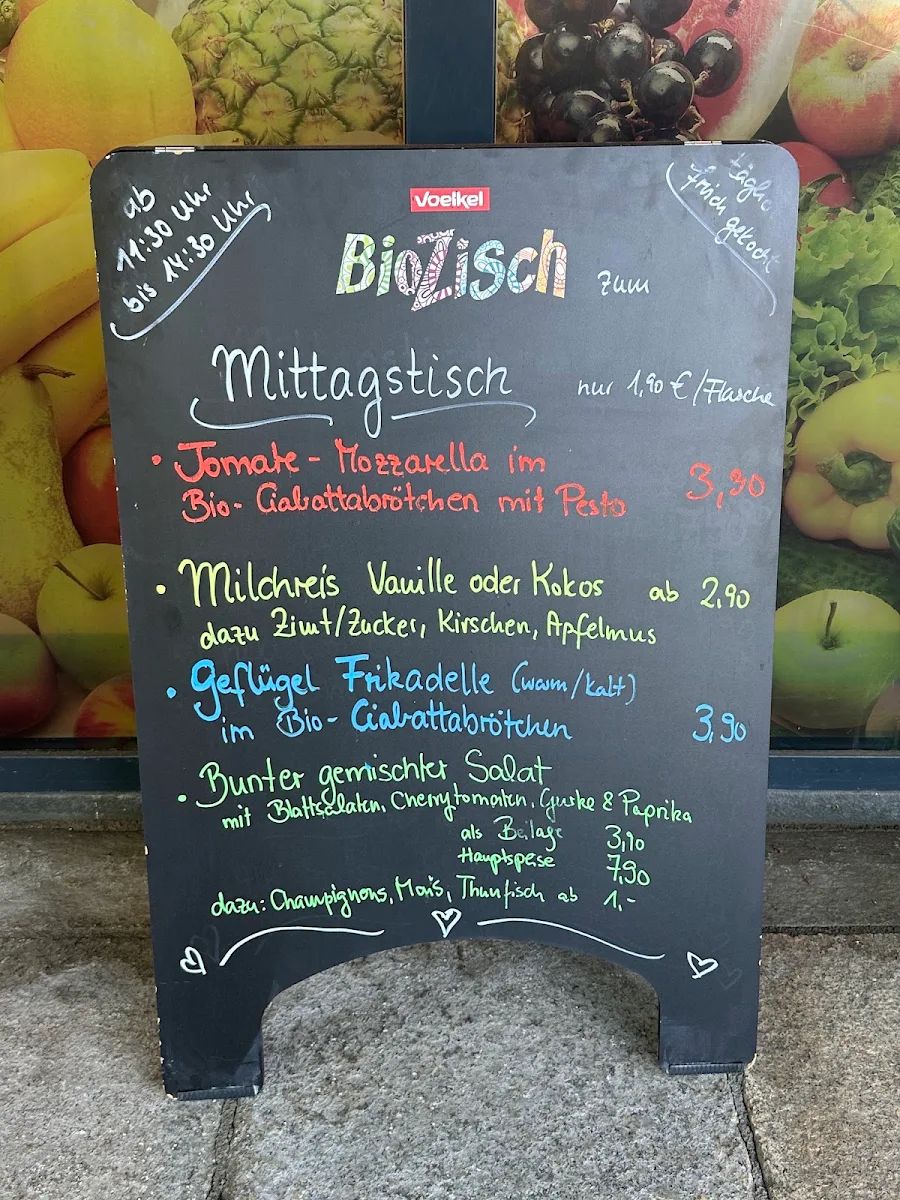 ab
11:30 Uhr
bis 14:30 Uhr
täglich
frisch gekocht
Voelkel
BioZisch zum
Mittagstisch nur 1,90 €/Flasche
• Tomate - Mozzarella im
Bio - Ciabattabrötchen mit Pesto 3,90
• Milchreis Vanille oder Kokos ab 2,90
dazu Zimt/Zucker, Kirschen, Apfelmus
• Geflügel Frikadelle (warm/kalt)
im Bio - Ciabattabrötchen 3,90
• Bunter gemischter Salat
mit Blattsalaten, Cherrytomaten, Gurke & Paprika
als Beilage 3,90
Hauptspeise 7,90
dazu: Champignons, Mais, Thunfisch ab 1,-